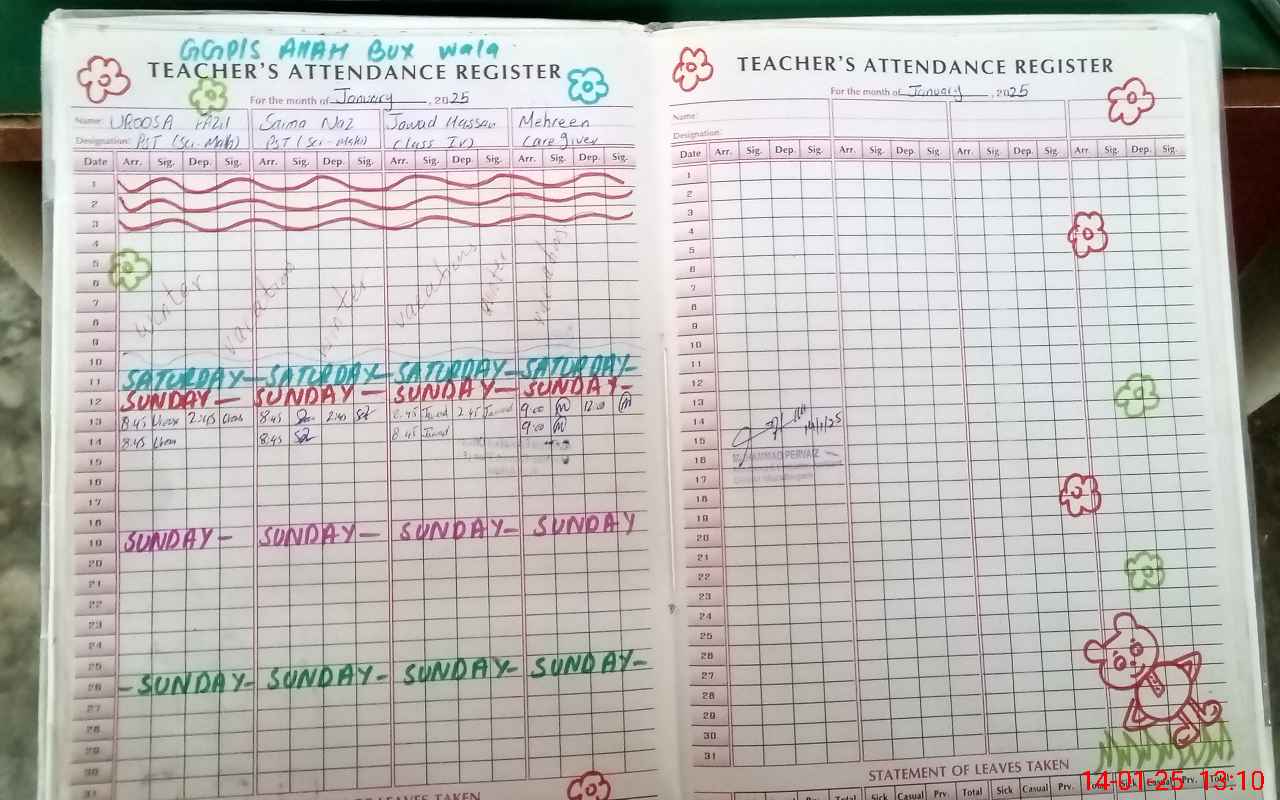 GGPIS ALLAH BUX wala
TEACHER'S ATTENDANCE REGISTER
For the month of January, 2025
Name: UROOSA FAZIL Saima Naz Jawad Hassan Mehreen
Designation: PST (Sci-Math) PST (Sci-Math) Class IV) Care giver
Date Arr. Sig. Dep. Sig. Arr. Sig. Dep. Sig. Arr. Sig. Dep. Sig. Arr. Sig. Dep. Sig.
1
2
3
4
5
6
7
8
9
winter vacation winter vacations winter vacations
10
11 SATURDAY— SATURDAY— SATURDAY— SATURDAY—
12 SUNDAY— SUNDAY— SUNDAY— SUNDAY—
13 8:45 2:45 8:45 2:45 8:45 Jawad 2:45 Jawad 9:00 M 12:00 M
14 8:45 8:45 8:45 Jawad 9:00 M
15
16
17
18
19 SUNDAY— SUNDAY— SUNDAY— SUNDAY
20
21
22
23
24
25
26 - SUNDAY- SUNDAY- SUNDAY- SUNDAY-
27
28
29
30
31
TEACHER'S ATTENDANCE REGISTER
For the month of January, 2025
Name:
Designation:
Date Arr. Sig. Dep. Sig. Arr. Sig. Dep. Sig. Arr. Sig. Dep. Sig. Arr. Sig. Dep. Sig.
1
2
3
4
5
6
7
8
9
10
11
12
13
14 14/1/25
15
16 MUHAMMAD PERVAIZ
17
18
19
20
21
22
23
24
25
26
27
28
29
30
31
STATEMENT OF LEAVES TAKEN
Total Sick Casual Prv. Total Sick Casual Prv. Total Sick Casual Prv. Total
14-01-25 13:10